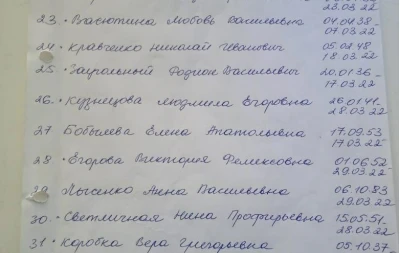 23.03.22
23. Васютина Любовь Васильевна 04.04.38-
07.03.22
24. Кравченко Николай Иванович 05.02.48
18.03.22
25. Загрольный Родион Васильевич 20.01.36-
17.03.22
26. Кузнецова Людмила Егоровна 26.01.41-
28.03.22
27 Бобылева Елена Анатольевна 17.09.53
17.03.22
28. Егорова Виктория Феликсовна 01.06.52
29.03.22
29. Лысенко Анна Васильевна 06.10.83
29.03.22
30. Светличная Нина Профирьевна 15.05.51-
28.03.22
31. Коробка Вера Григорьевна 05.10.37-